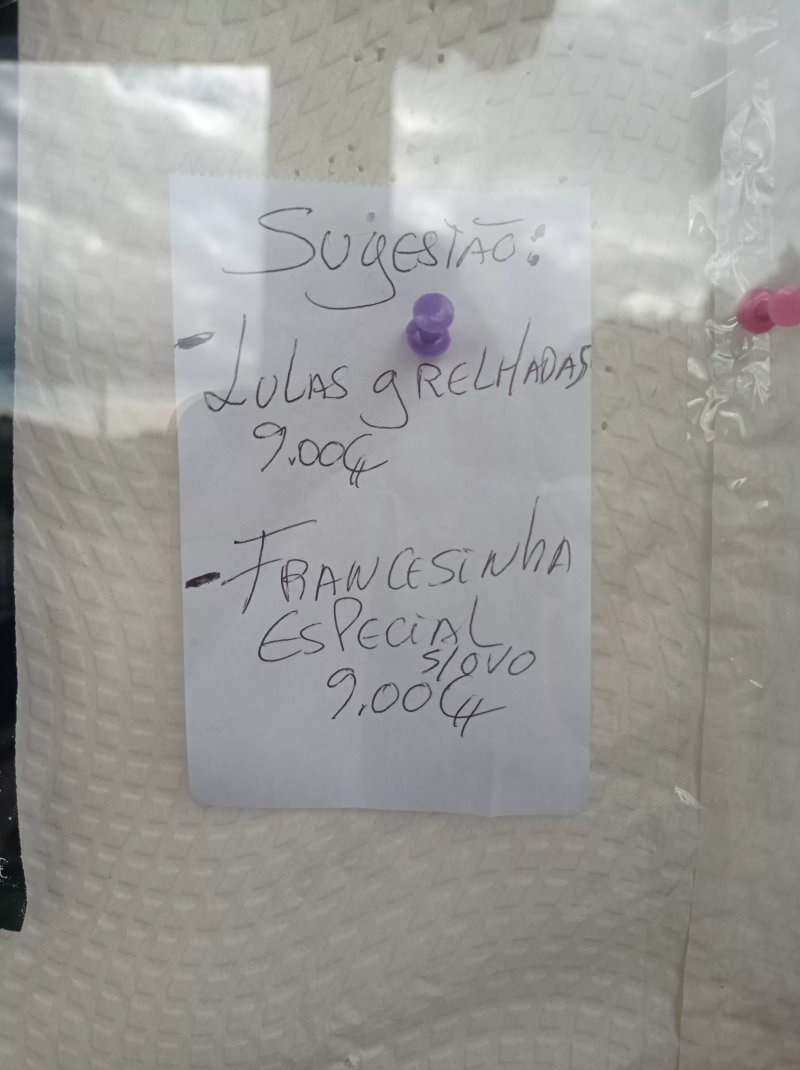 Sugestão:
- Lulas grelhadas
9.00€
- Francesinha
Especial
s/ovo
9.00€